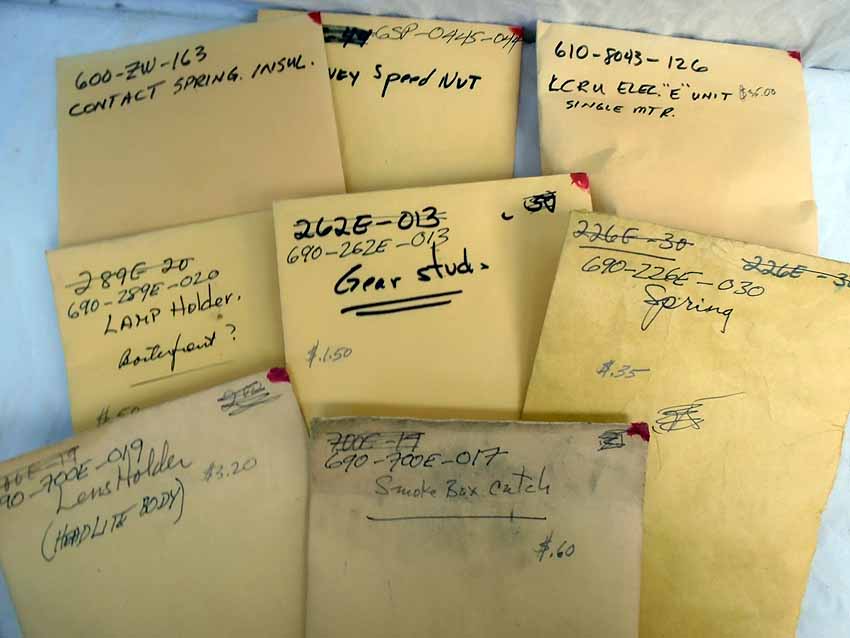 600-ZW-163
CONTACT SPRING. INSUL.
6SP-0445-044
Speed NUT
610-8043-126
LCRU ELEC. "E" UNIT $36.00
SINGLE MTR.
289E-20
690-289E-020
LAMP Holder.
Boilerfront?
$.50
262E-013
690-262E-013
Gear stud.
$.1.50
226E-30
226E-3
690-226E-030
Spring
$.35
6E-19
90-700E-019
Lens Holder
$3.20
(HEADLITE BODY)
700E-17
21
690-700E-017
Smoke Box Catch
$.60